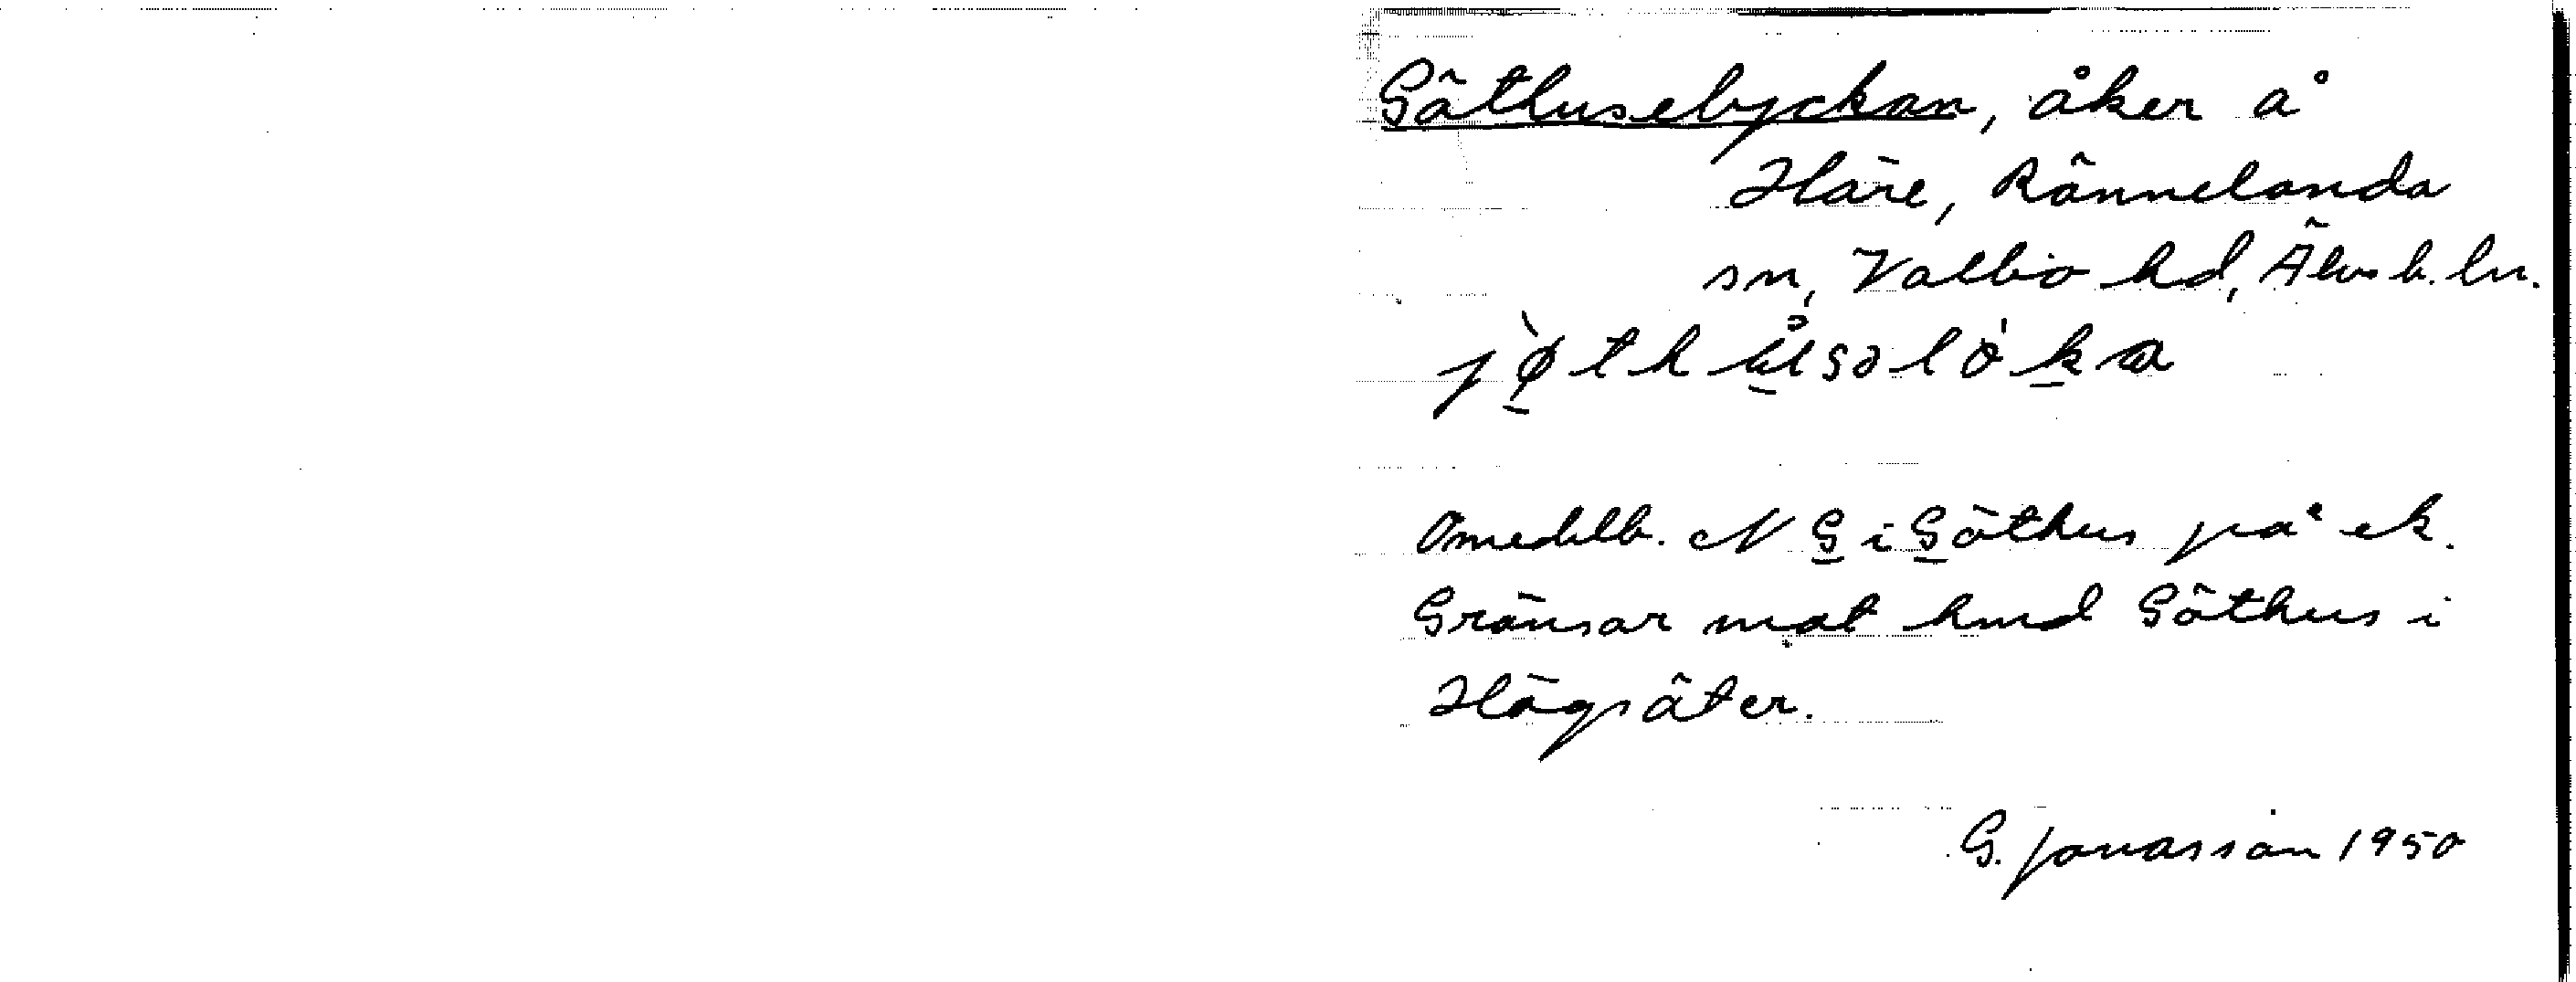 Göthuselyckan, åker å
Häre, Rännelanda
sn, Valbo hd, Älvsb. ln.
Omedelb. N G i Göthus på ek.
Gränsar mot hmd Göthus i
Högsäter.
G. Jonasson 1950